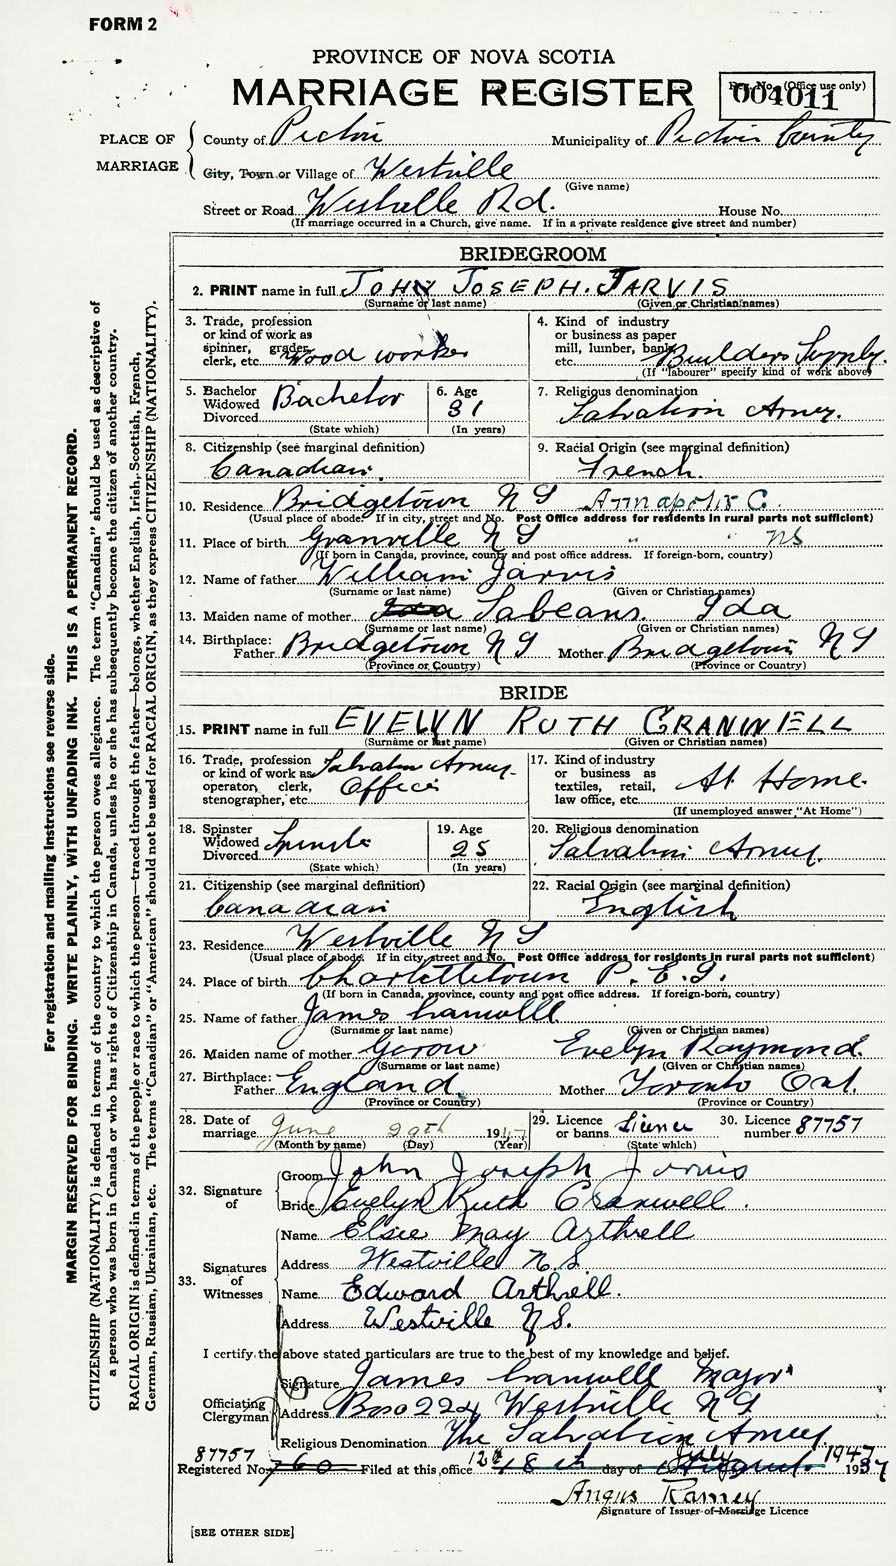 FORM 2
PROVINCE OF NOVA SCOTIA
MARRIAGE REGISTER
Reg. No. (Office use only)
004011
PLACE OF MARRIAGE
County of Pictou Municipality of Pictou County
City, Town or Village of Westville
(Give name)
Street or Road Westville Rd. House No.
(If marriage occurred in a Church, give name. If in a private residence give street and number)
BRIDEGROOM
2. PRINT name in full JOHN JOSEPH. JARVIS
(Surname or last name) (Given or Christian names)
3. Trade, profession or kind of work as spinner, grader, clerk, etc. Wood worker
4. Kind of industry or business as paper mill, lumber, bank, etc. Builders Supply.
(If "labourer" specify kind of work above)
5. Bachelor Widowed Divorced Bachelor
(State which)
6. Age 31
(In years)
7. Religious denomination
Salvation Army.
8. Citizenship (see marginal definition)
Canadian.
9. Racial Origin (see marginal definition)
French.
10. Residence Bridgetown N S Annapolis C.
(Usual place of abode. If in city, street and No. Post Office address for residents in rural parts not sufficient)
11. Place of birth Granville N S " " NS
(If born in Canada, province, county and post office address. If foreign-born, country)
12. Name of father William Jarvis
(Surname or last name) (Given or Christian names)
13. Maiden name of mother Sabeans. Ida
(Surname or last name) (Given or Christian names)
14. Birthplace: Father Bridgetown N S Mother Bridgetown N S
(Province or Country) (Province or Country)
BRIDE
15. PRINT name in full EVELYN RUTH CRANWELL
(Surname or last name) (Given or Christian names)
16. Trade, profession or kind of work as operator, clerk, stenographer, etc. Salvation Army Officer
17. Kind of industry or business as textiles, retail, law office, etc. At Home.
(If unemployed answer "At Home")
18. Spinster Widowed Divorced Spinster
(State which)
19. Age 25
(In years)
20. Religious denomination
Salvation Army.
21. Citizenship (see marginal definition)
Canadian
22. Racial Origin (see marginal definition)
English
23. Residence Westville N S
(Usual place of abode. If in city, street and No. Post Office address for residents in rural parts not sufficient)
24. Place of birth Charlottetown P. E. I.
(If born in Canada, province, county and post office address. If foreign-born, country)
25. Name of father James Cranwell
(Surname or last name) (Given or Christian names)
26. Maiden name of mother Gorow Evelyn Raymond.
(Surname or last name) (Given or Christian names)
27. Birthplace: Father England. Mother Toronto Ont.
(Province or Country) (Province or Country)
28. Date of marriage June 29th 1947
(Month by name) (Day) (Year)
29. Licence or banns Licence
(State which)
30. Licence number 87757
32. Signature of
Groom John Joseph Jarvis
Bride Evelyn Ruth Cranwell.
33. Signatures of Witnesses
Name Elsie May Arthrell
Address Westville N.S.
Name Edward Arthrell.
Address Westville N.S.
I certify the above stated particulars are true to the best of my knowledge and belief.
Officiating Clergyman
Signature James Cranwell Major
Address Box 224 Westville N S
Religious Denomination The Salvation Army
87757 12th July 1947
Registered No. 760 Filed at this office 18th day of August. 1937
Angus Ramey
Signature of Issuer of Marriage Licence
[SEE OTHER SIDE]
For registration and mailing instructions see reverse side.
MARGIN RESERVED FOR BINDING. WRITE PLAINLY, WITH UNFADING INK. THIS IS A PERMANENT RECORD.
CITIZENSHIP (NATIONALITY) is defined in terms of the country to which the person owes allegiance. The term "Canadian" should be used as descriptive of
a person who was born in Canada or who has rights of Citizenship in Canada, unless he or she has subsequently become the citizen of another country.
RACIAL ORIGIN is defined in terms of the people or race to which the person—traced through the father—belongs, whether English, Irish, Scottish, French,
German, Russian, Ukrainian, etc. The terms "Canadian" or "American" should not be used for RACIAL ORIGIN, as they express CITIZENSHIP (NATIONALITY).